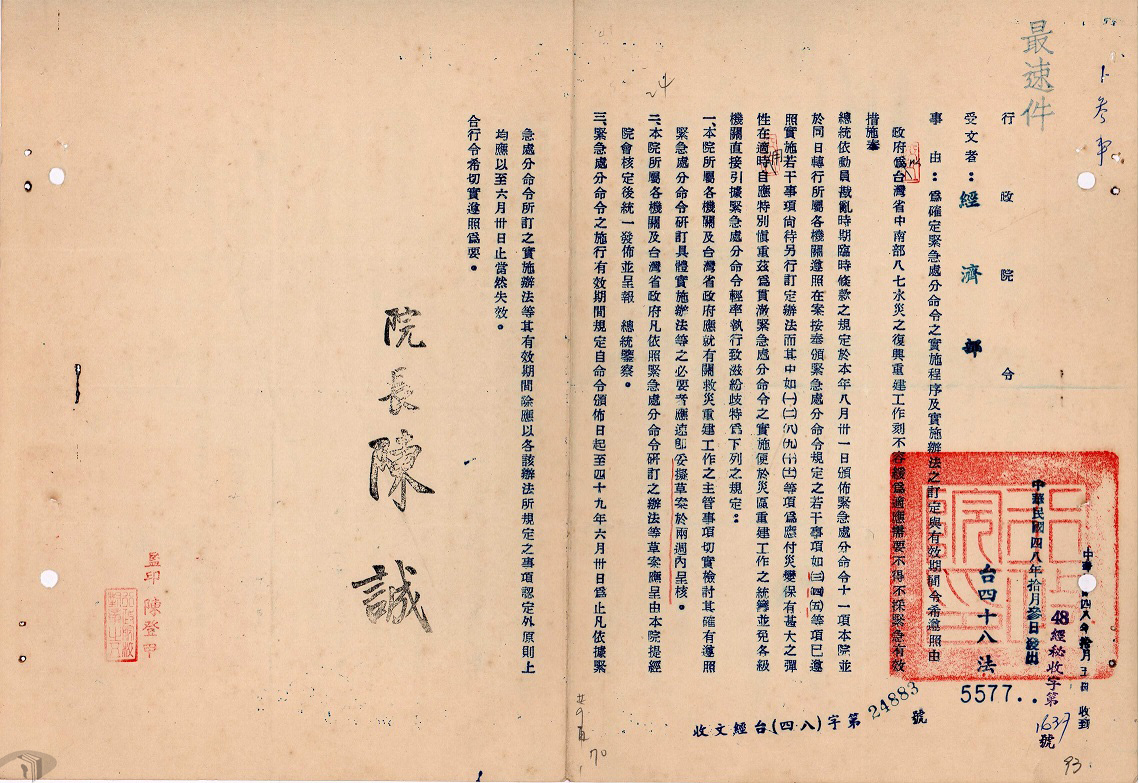 最速件
卜參事
行政院 令
受文者：經濟部
事由：為確定緊急處分命令之實施程序及實施辦法之訂定與有效期間令希遵照由
中華民國四八年拾月參日發出
台四十八法
5577..
48經秘收字第1637號
政府為台灣省中南部八七水災之復興重建工作刻不容緩為適應需要不得不採緊急有效
措施奉
總統依動員戡亂時期臨時條款之規定於本年八月卅一日頒佈緊急處分命令十一項本院並
於同日轉行所屬各機關遵照在案按奉頒緊急處分命令規定之若干事項如(三)(四)(五)等項已遵
照實施若干事項尚待另行訂定辦法而其中如(一)(二)(八)(九)(十)(十一)等項為應付災變保有甚大之彈
性在適時自應特別慎重茲為貫澈緊急處分命令之實施便於災區重建工作之統籌並免各級
用
機關直接引據緊急處分命令輕率執行致滋紛歧特為下列之規定：
一、本院所屬各機關及台灣省政府應就有關救災重建工作之主管事項切實檢討其確有遵照
緊急處分命令研訂具體實施辦法等之必要者應迅即妥擬草案於兩週內呈核。
二、本院所屬各機關及台灣省政府凡依照緊急處分命令研訂之辦法等草案應呈由本院提經
院會核定後統一發佈並呈報 總統鑒察。
三、緊急處分命令之施行有效期間規定自命令頒佈日起至四十九年六月卅日為止凡依據緊
急處分命令所訂之實施辦法等其有效期間除應以各該辦法所規定之事項認定外原則上
均應以至六月卅日止當然失效。
合行令希切實遵照為要。
院長陳誠
監印 陳登甲
收文經台(四八)字第24883號
70
93